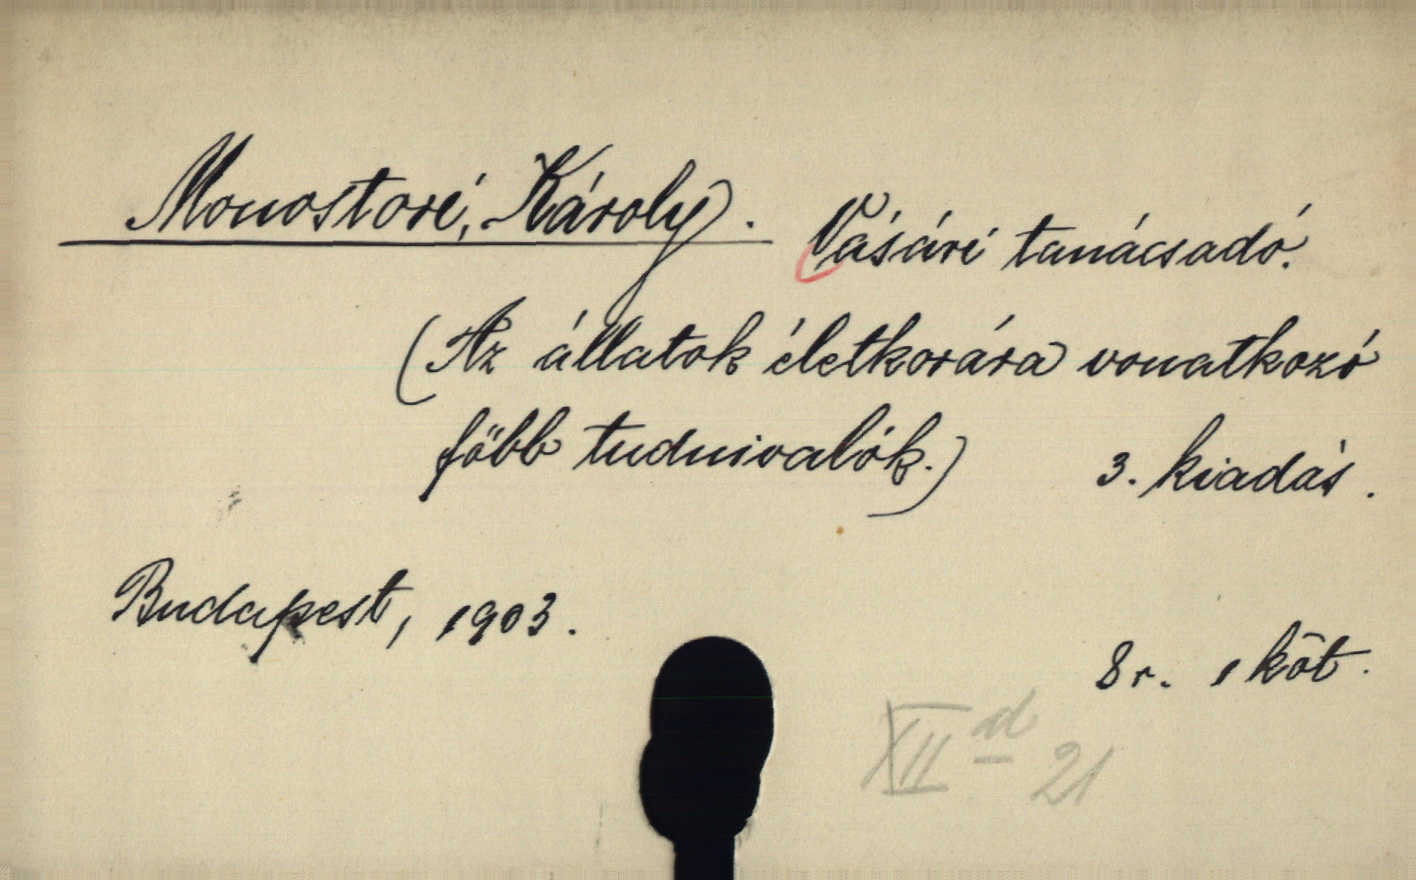 Monostori, Károly. Vásári tanácsadó.
(Az állatok életkorára vonatkozó
főbb tudnivalók.) 3. kiadás.
Budapest, 1903.
8r. 1 köt.
XII d 21